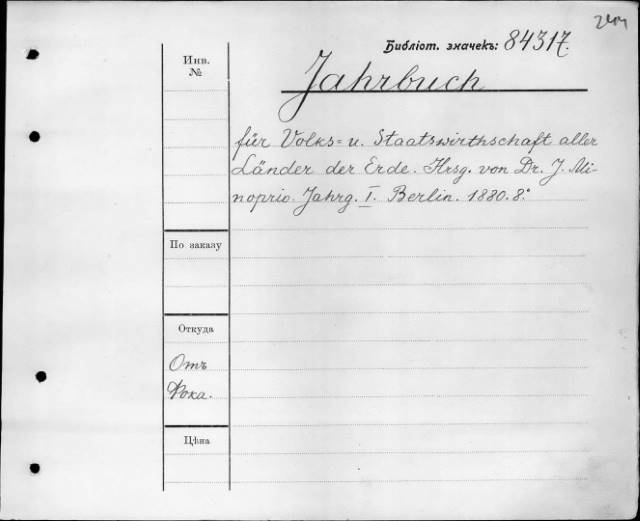 Библіот. значекъ: 84317.
Инв.
№
Jahrbuch
für Volks= u. Staatswirthschaft aller
Länder der Erde. Hrsg. von Dr. J. Mi-
noprio. Jahrg. I. Berlin. 1880. 8.°
По заказу
Откуда
Отъ
Фока.
Цѣна